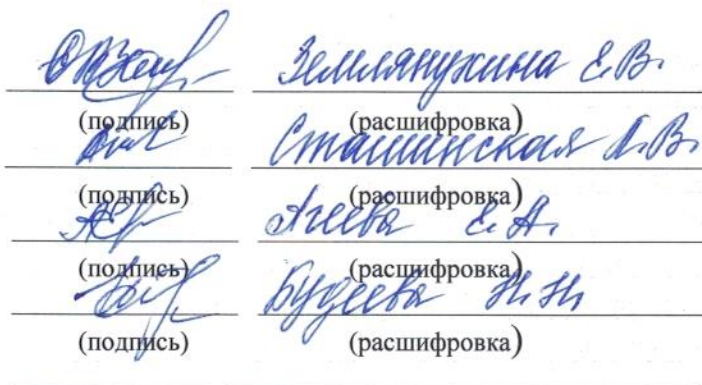 Землянухина Е.В.
(подпись) (расшифровка)
Сташинская А.В.
(подпись) (расшифровка)
Агеева Е.А.
(подпись) (расшифровка)
Будеева Н.Н.
(подпись) (расшифровка)